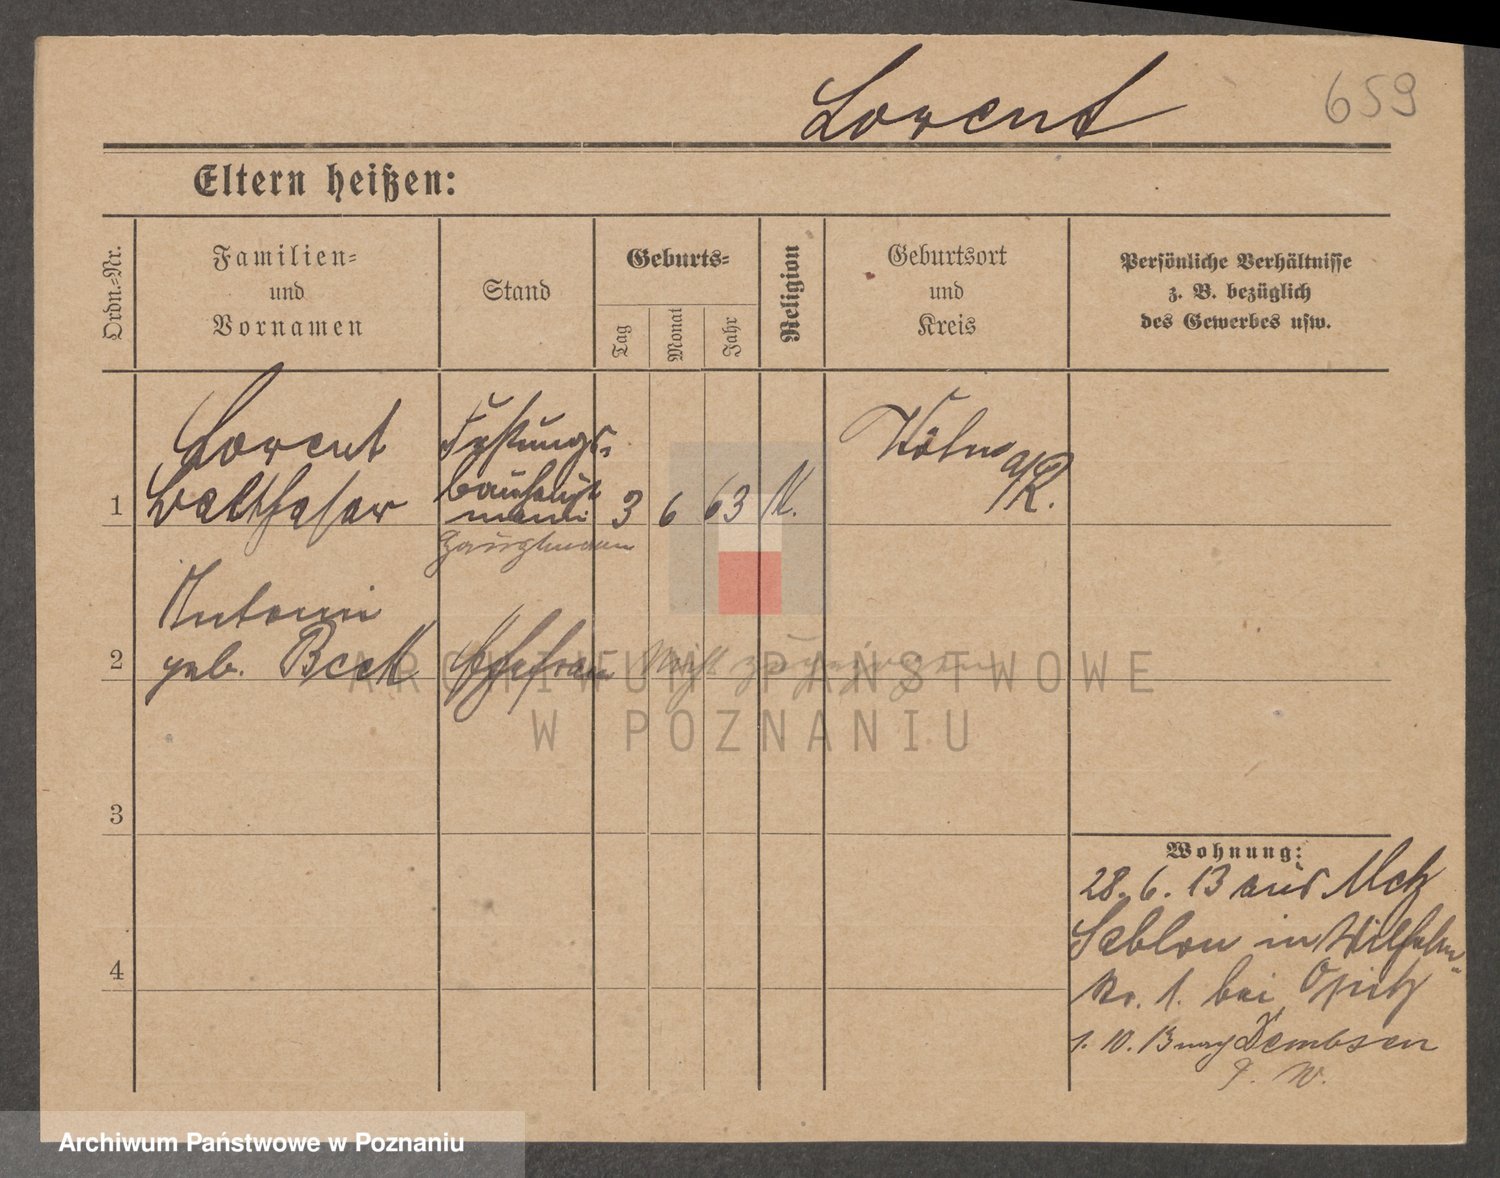 Lorent
659
Eltern heißen:
Ordn.-Nr.
Familien-
und
Vornamen
Stand
Geburts-
Tag
Monat
Jahr
Religion
Geburtsort
und
Kreis
Persönliche Verhältnisse
z. B. bezüglich
des Gewerbes usw.
1
Lorent
Balthasar
Festungs-
bauhaupt
mann
Hauptmann
3 6 63 K.
Köln a/R.
2
Antonie
geb. Beck
Ehefrau
Nicht zugezogen
3
4
Wohnung:
28. 6. 13 aus Metz
Sablon in Wilhelm-
str. 1. bei Opitz
1. 10. 13 nach Dembsen
P. W.
ARCHIWUM PAŃSTWOWE
W POZNANIU
Archiwum Państwowe w Poznaniu